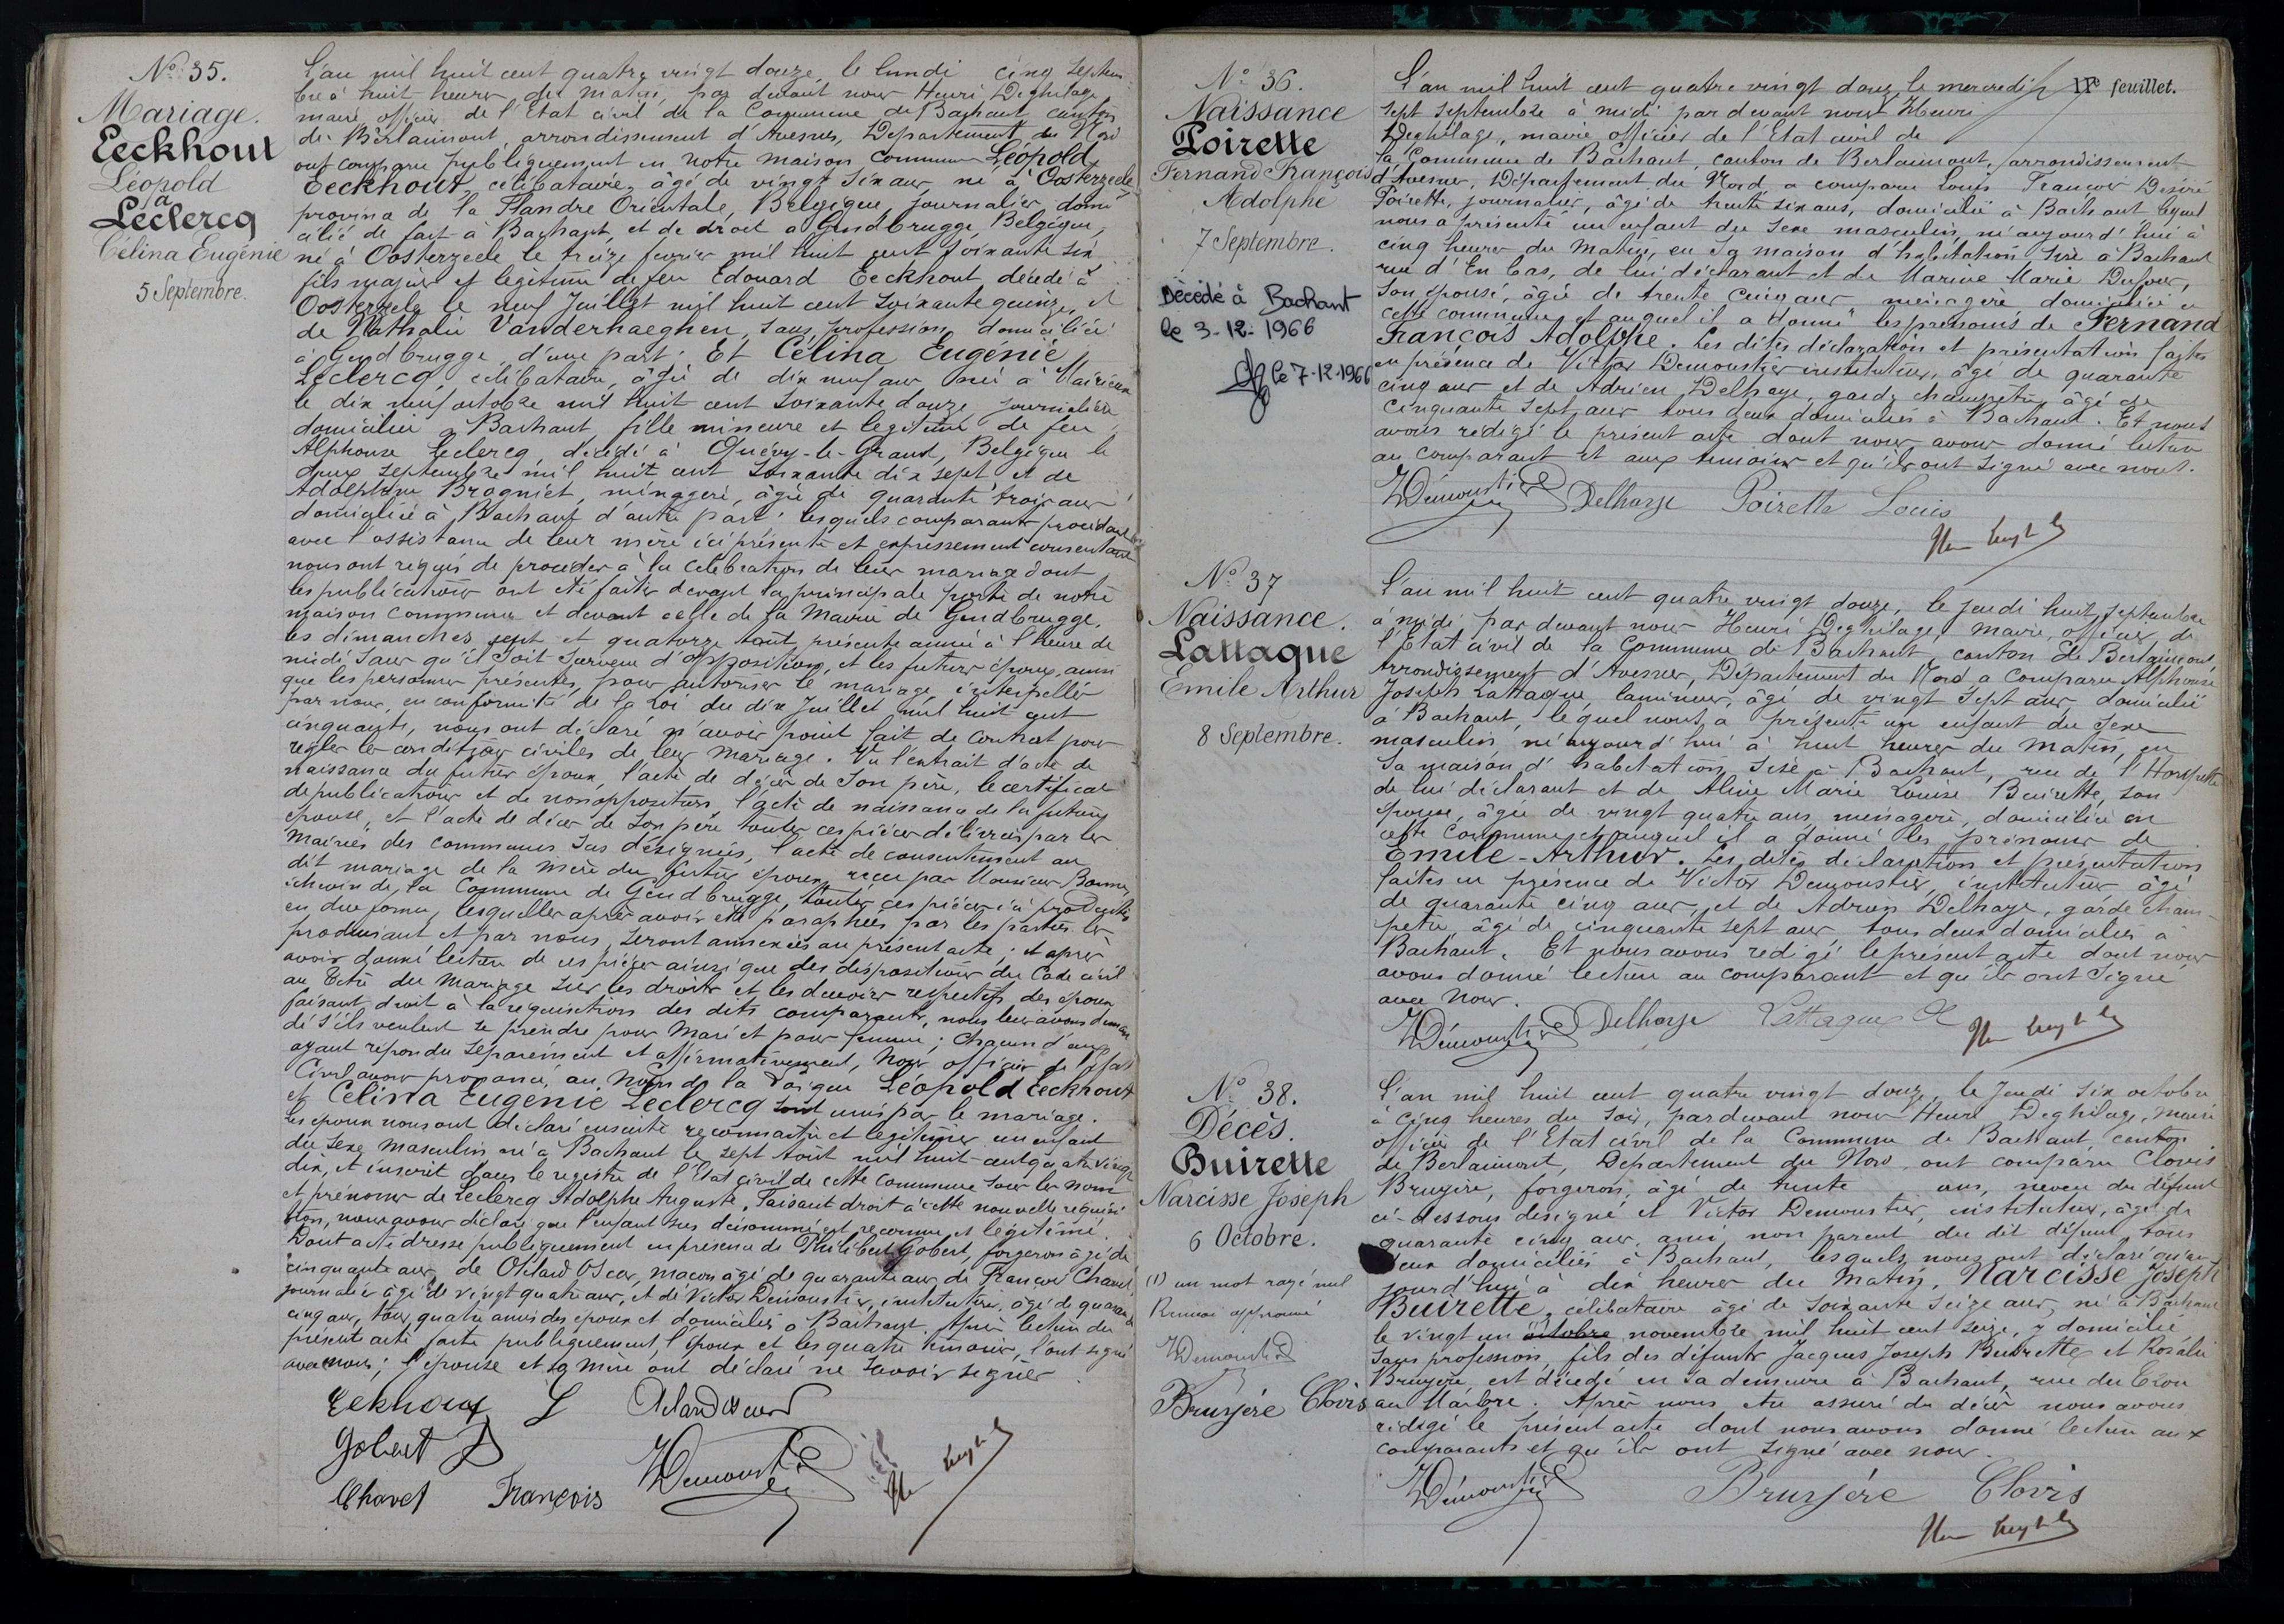 No. 35.
Mariage.
Eeckhout
Léopold
à
Leclercq
Célina Eugénie
5 Septembre.
L'an mil huit cent quatre vingt douze, le lundi cinq septem
bre à huit heures du matin, par devant nous Henri Deghilage,
maire, officier de l'Etat civil de la Commune de Bachant, canton
de Berlaimont, arrondissement d'Avesnes, Département du Nord
ont comparu publiquement en notre maison commune Léopold
Eeckhout, célibataire, âgé de vingt six ans, né à Oosterzeele
province de la Flandre Orientale, Belgique, journalier, domi
cilié de fait à Bachant, et de droit à Gendbrugge, Belgique,
né à Oosterzeele le treize février mil huit cent soixante six
fils majeur et légitime de feu Edouard Eeckhout décédé à
Oosterzeele le neuf Juillet mil huit cent soixante quinze, et
de Nathalie Vanderhaeghen, sans profession, domiciliée
à Gendbrugge, d'une part; Et Célina Eugénie
Leclercq, célibataire, âgée de dix neuf ans, née à Mairieux
le dix neuf octobre mil huit cent soixante douze, journalière
domiciliée à Bachant, fille mineure et légitime de feu
Alphonse Leclercq, décédé à Quévy-le-Grand, Belgique le
deux septembre mil huit cent soixante dix sept et de
Adolphine Brogniet, ménagère, âgée de quarante trois ans
domiciliée à Bachant d'autre part; lesquels comparants procédant
avec l'assistance de leur mère ici présente et expressément consentante
nous ont requis de procéder à la célébration de leur mariage dont
les publications ont été faites devant la principale porte de notre
maison commune et devant celle de la Mairie de Gendbrugge,
les dimanches sept et quatorze août présente année à l'heure de
midi sans qu'il soit survenu d'opposition, et les futurs époux, ainsi
que les personnes présentes pour autoriser le mariage, interpellés
par nous, en conformité de la loi du dix Juillet mil huit cent
cinquante, nous ont déclaré n'avoir point fait de contrat pour
régler les conditions civiles de leur mariage. Vu l'extrait d'acte de
naissance du futur époux, l'acte de décès de son père, le certificat
de publications et de non opposition, l'acte de naissance de la future
épouse, et l'acte de décès de son père toutes ces pièces délivrées par les
mairies des communes sus désignées, l'acte de consentement au
dit mariage de la mère du futur époux reçu par Monsieur
échevin de la Commune de Gendbrugge, toutes ces pièces ici produites
en due forme, lesquelles après avoir été paraphées par les parties les
produisant et par nous seront annexées au présent acte; et après
avoir donné lecture de ces pièces ainsi que des dispositions du Code civil
au Titre du Mariage sur les droits et les devoirs respectifs des époux
faisant droit à la réquisition des dits comparants, nous leur avons deman
dé s'ils veulent se prendre pour Mari et pour femme; chacun d'eux
ayant répondu séparément et affirmativement, Nous officier de l'Etat
Civil avons prononcé au Nom de la Loi que Léopold Eeckhout
et Célina Eugénie Leclercq sont unis par le mariage.
Les époux nous ont déclaré ensuite reconnaître et légitimer un enfant
du sexe masculin né à Bachant le sept Août mil huit cent quatre vingt
dix, et inscrit dans le registre de l'Etat civil de cette Commune sous les nom
et prénoms de Leclercq Adolphe Auguste. Faisant droit à cette nouvelle réquisi
tion, nous avons déclaré que l'enfant sus dénommé est reconnu et légitimé.
Dont acte dressé publiquement en présence de Philibert Gobert, forgeron âgé de
cinquante ans, de Oscar, maçon âgé de quarante ans, de François Chavet,
journalier âgé de vingt quatre ans, et de Victor Demoustier, instituteur, âgé de quarante
cinq ans, tous quatre amis des époux et domiciliés à Bachant. Après lecture du
présent acte faite publiquement, l'époux et les quatre témoins, l'ont signé
avec nous; l'épouse et sa mère ont déclaré ne savoir signer.
Eekhout L
Gobert
VDemoustier
Chavet François
IIe feuillet.
No. 36.
Naissance
Poirette
Fernand François
Adolphe
7 Septembre.
Décédé à Bachant
le 3-12-1966
le 7-12-1966
L'an mil huit cent quatre vingt douze le mercredi
sept septembre à midi par devant nous Henri
Deghilage, maire officier de l'Etat civil de
la Commune de Bachant, canton de Berlaimont, arrondissement
d'Avesnes, Département du Nord, a comparu Louis François Désiré
Poirette, journalier, âgé de trente six ans, domicilié à Bachant lequel
nous a présenté un enfant du sexe masculin, né aujourd'hui à
cinq heures du matin, en sa maison d'habitation sise à Bachant
rue d'En bas, de lui déclarant et de Marie Dufour,
son épouse, âgée de trente cinq ans ménagère domiciliée en
cette commune et auquel il a donné les prénoms de Fernand
François Adolphe. Les dites déclaration et présentation faites
en présence de Victor Demoustier instituteur, âgé de quarante
cinq ans et de Adrien Delhaye, garde champêtre âgé de
cinquante sept ans tous deux domiciliés à Bachant. Et nous
avons rédigé le présent acte dont nous avons donné lecture
au comparant et aux témoins et qu'ils ont signé avec nous.
VDémoustier Delhaye Poirette Louis
No. 37
Naissance.
Lattaque
Emile Arthur
8 Septembre.
L'an mil huit cent quatre vingt douze, le jeudi huit septembre
à midi par devant nous Henri Deghilage, maire, officier de
l'Etat civil de la Commune de Bachant, canton de Berlaimont,
Arrondissement d'Avesnes, Département du Nord a comparu Alphonse
Joseph Lattaque, lamineur, âgé de vingt sept ans, domicilié
à Bachant, lequel nous a présenté un enfant du sexe
masculin, né aujourd'hui à huit heures du matin, en
sa maison d'habitation sise à Bachant, rue de l'
de lui déclarant et de Aline Marie Louise Buirette, son
épouse, âgée de vingt quatre ans, ménagère, domiciliée en
cette Commune, et auquel il a donné les prénoms de
Emile-Arthur. Les dites déclaration et présentation
faites en présence de Victor Demoustier, instituteur âgé
de quarante cinq ans, et de Adrien Delhaye, garde cham-
pêtre, âgé de cinquante sept ans tous deux domiciliés à
Bachant. Et nous avons rédigé le présent acte dont nous
avons donné lecture au comparant et qu'ils ont signé
avec nous.
VDémoustier Delhaye Lattaque A
No. 38.
Décès.
Buirette
Narcisse Joseph
6 Octobre.
(1) un mot rayé nul
Renvoi approuvé
VDemoustier
Bruyère Clovis
L'an mil huit cent quatre vingt douze, le Jeudi six octobre
à cinq heures du soir, par devant nous Henri Deghilage, maire
officier de l'Etat civil de la Commune de Bachant, canton
de Berlaimont, Département du Nord, ont comparu Clovis
Bruyère, forgeron, âgé de trente ans, neveu du défunt
ci-dessous désigné et Victor Demoustier, instituteur, âgé de
quarante cinq ans, ami, non parent du dit défunt, tous
deux domiciliés à Bachant, lesquels nous ont déclaré qu'au-
jourd'hui à dix heures du matin, Narcisse Joseph
Buirette, célibataire âgé de soixante seize ans, né à Bachant
le vingt un octobre novembre mil huit cent seize, y domicilié
sans profession, fils des défunts Jacques Joseph Buirette et Rosalie
Bruyère, est décédé en sa demeure à Bachant, rue du Trou
au Marbre. Après nous être assuré du décès nous avons
rédigé le présent acte dont nous avons donné lecture aux
comparants et qu'ils ont signé avec nous.
VDémoustier Bruyère Clovis